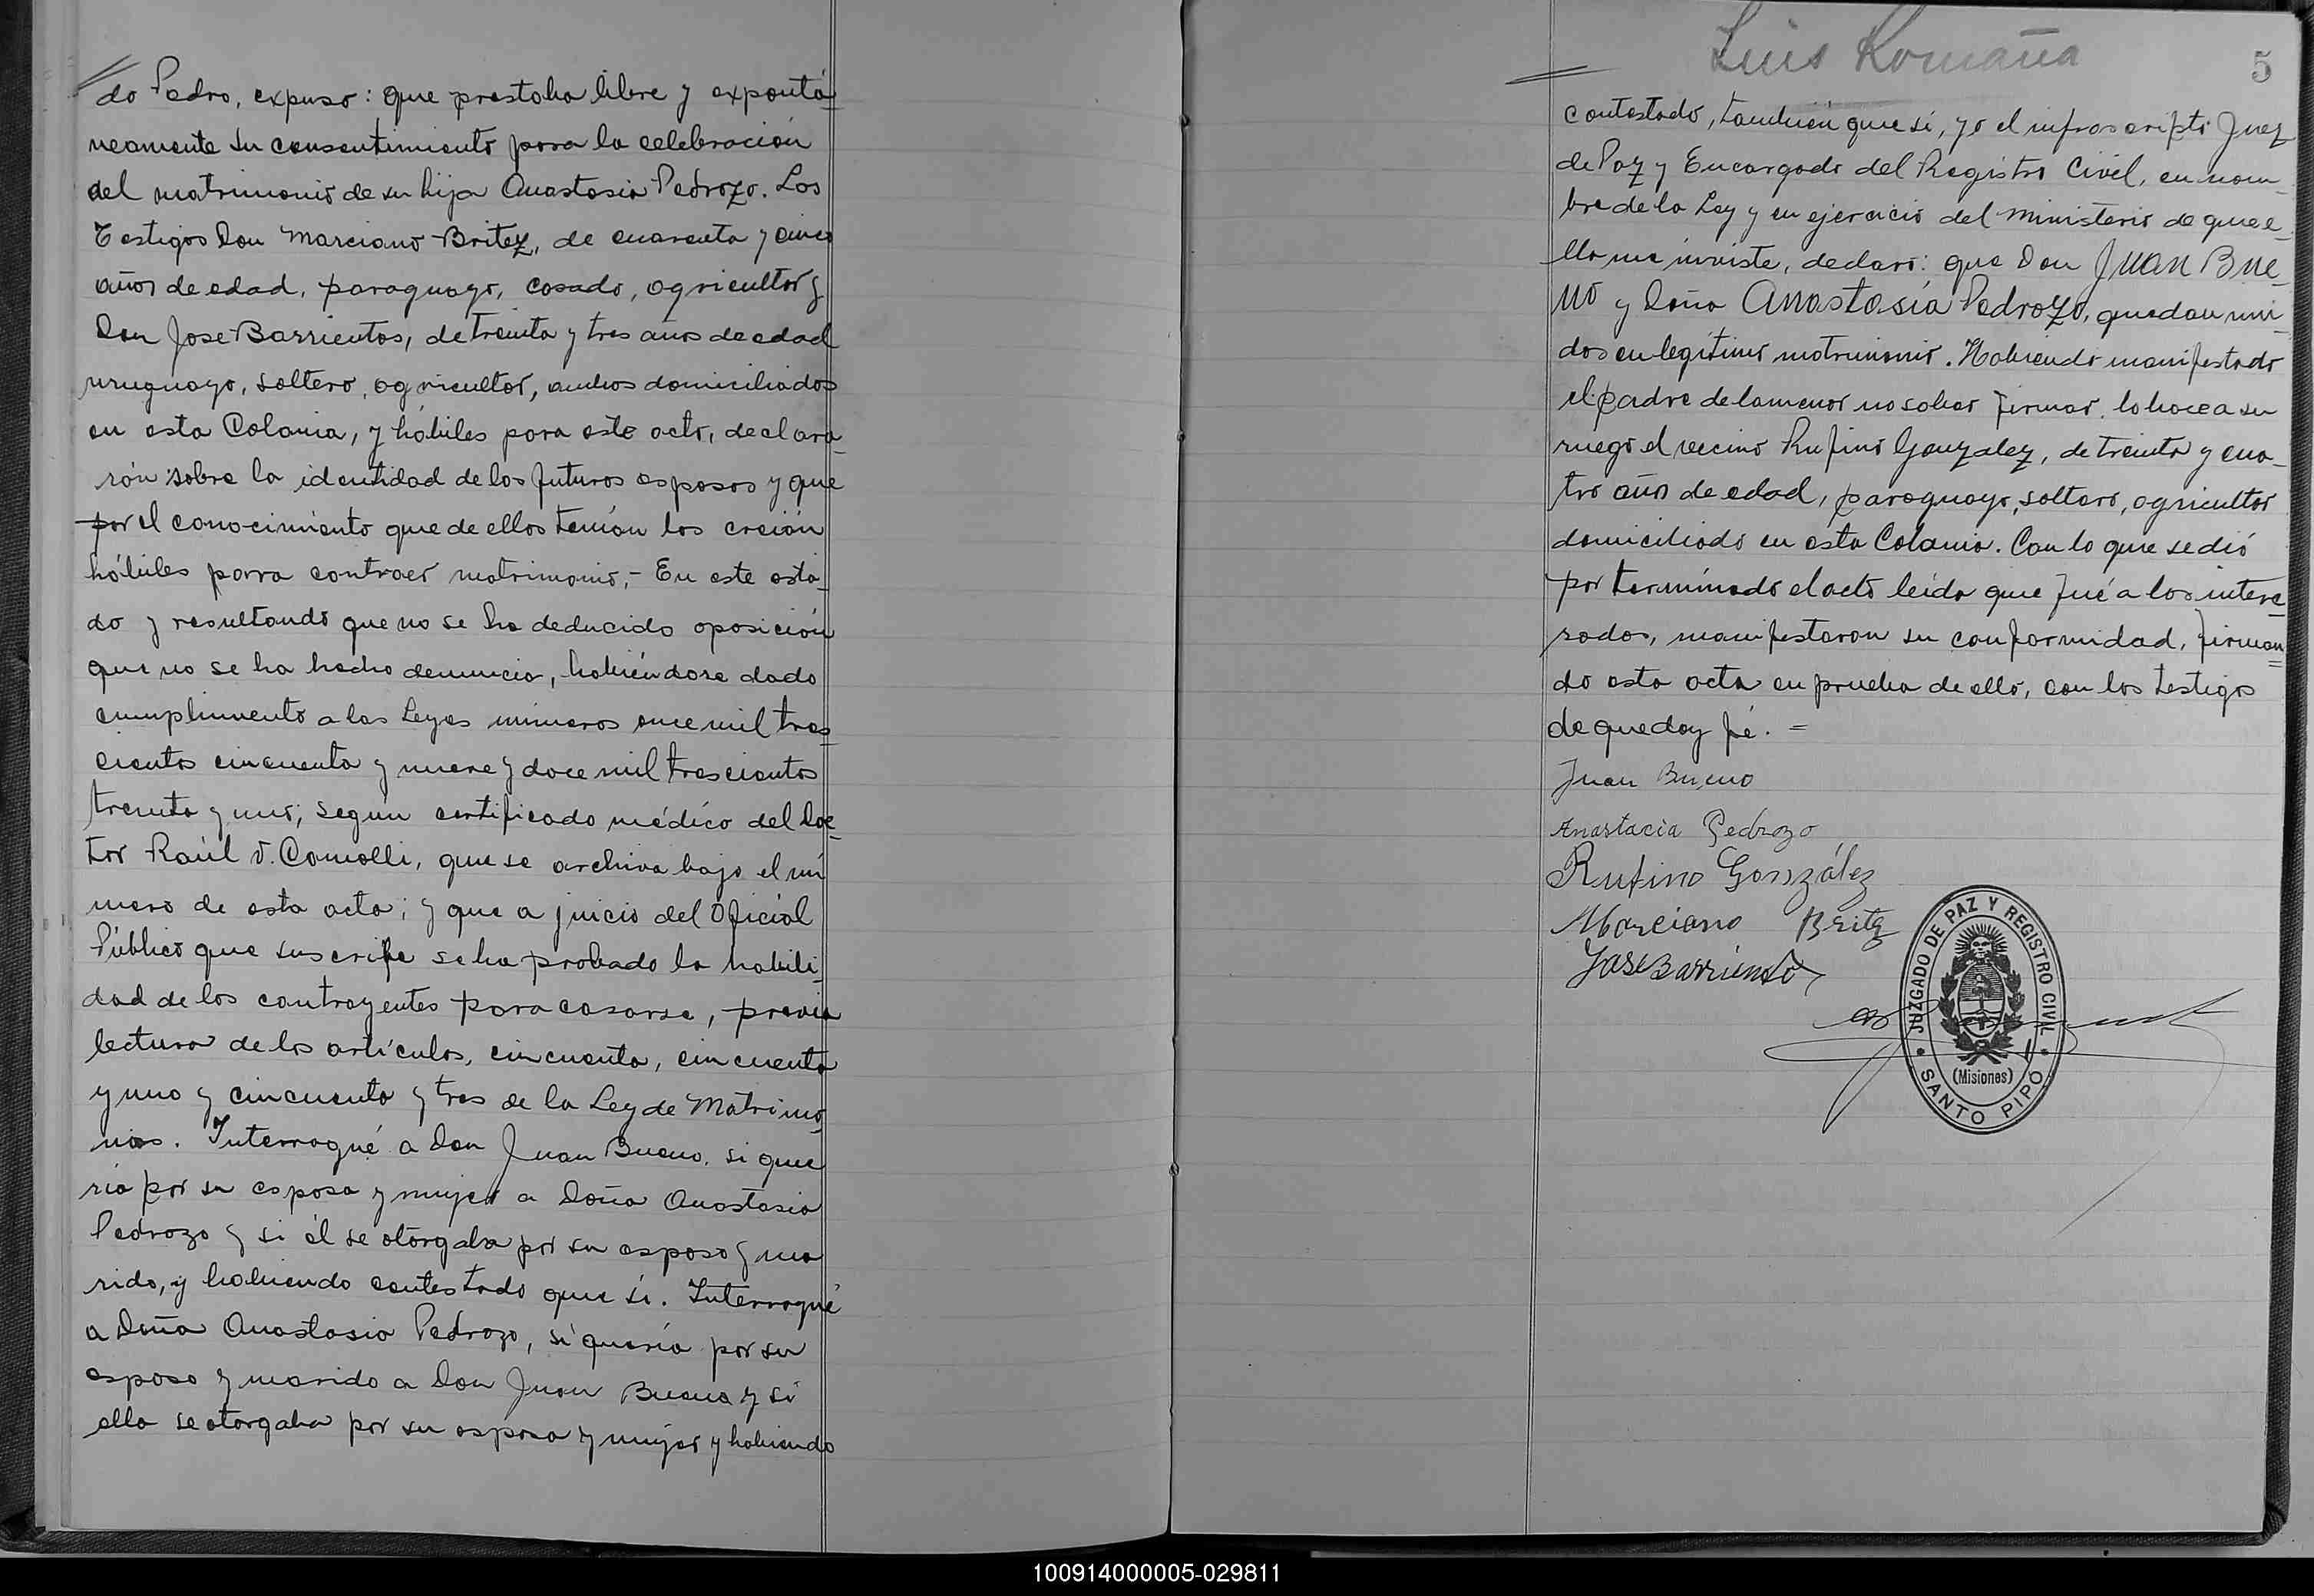 do Pedro, expuso: que prestaba libre y expontá-
neamente su consentimiento para la celebración
del matrimonio de su hija Anastasia Pedrozo. Los
Testigos Don Marciano Britez, de cuarenta y cinco
años de edad, paraguayo, casado, agricultor y
Don Jose Barrientos, de treinta y tres años de edad
uruguayo, soltero, agricultor, ambos domiciliados
en esta Colonia, y hábiles para este acto, declara-
rón sobre la identidad de los futuros esposos y que
por el conocimiento que de ellos tenían los creían
hábiles parra contraer matrimonio,- En este esta-
do y resultando que no se ha deducido oposición
que no se ha hecho denuncia, habiéndose dado
cumplimiento a las Leyes números once mil tres-
cientos cincuenta y nueve y doce mil trescientos
treinta y uno; según certificado médico del Doc-
tor Raúl V. Comolli, que se archiva bajo el nú
mero de esta acta; y que a juicio del Oficial
Público que suscribe se ha probado la habili-
dad de los contrayentes para casarse, previa
lectura de los artículos, cincuenta, cincuenta
y uno y cincuenta y tres de la Ley de Matrimo-
nios. Interrogué a Don Juan Bueno, si que
ría por su esposa y mujer a Doña Anastasia
Pedrozo y si él se otorgaba por su esposo y ma
rido, y habiendo contestado que si. Interrogué
a Doña Anastasia Pedrozo, si quería por su
esposo y marido a Don Juan Bueno y si
ella se otorgaba por su esposa y mujer y habiendo
Luis Romaña
5
contestado, también que si, yo el infrascripto Juez
de Paz y Encargado del Registro Civil, en nom-
bre de la Ley y en ejercicio del ministerio de que e-
lla me inviste, declaro: que Don JUAN BUE-
NO y Doña Anastasia Pedrozo, quedan uni-
dos en legítimo matrimonio. Habiendo manifestado
el padre de la menor no saber firmar lo hace a su
ruego el vecino Rufino Gonzalez, de treinta y cua-
tro años de edad, paraguayo, soltero, agricultor
domiciliado en esta Colonia. Con lo que se dió
por terminado el acto leída que fué a los intere-
sados, manifestaron su conformidad, firman-
do esta acta en prueba de ello, con los testigos
de que doy fé. =
Juan Bueno
Anastacia Pedrozo
Rufino González
Marciano Britez
Jose Barriento
JUZGADO DE PAZ Y REGISTRO CIVIL
(Misiones)
SANTO PIPÓ
100914000005-029811